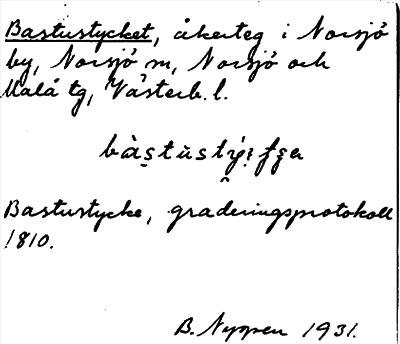 Bastustycket, åkerteg i Norsjö
by, Norsjö sn, Norsjö och
Malå tg, Västerb. l.
Bastustycke, graderingsprotokoll
1810.
B. Nyppen 1931.